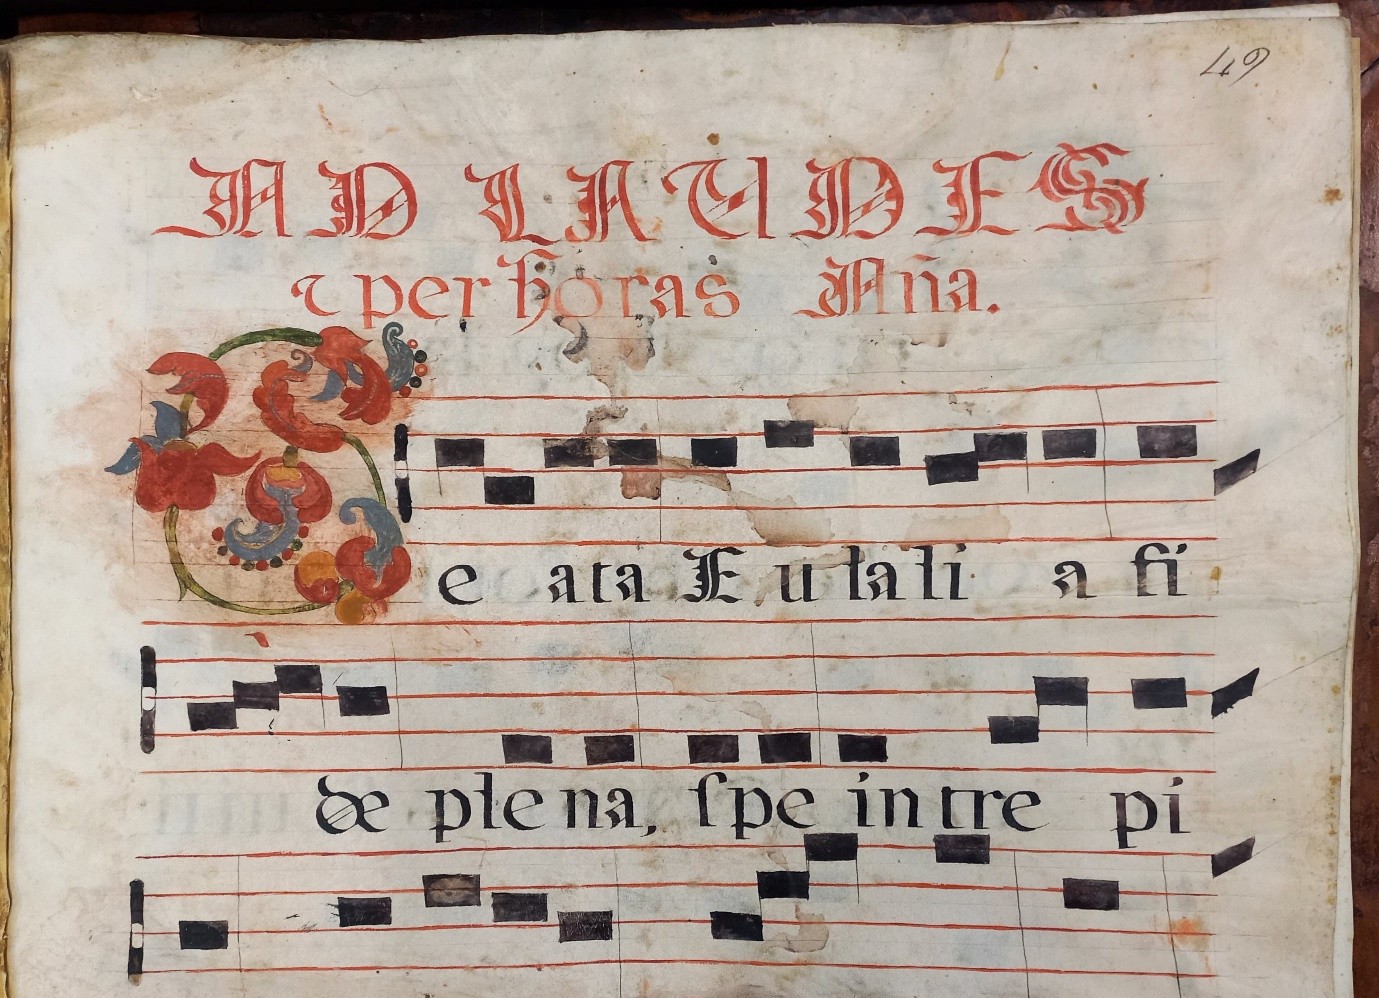 49
AD LAUDES
⁊ per horas Aña.
Be ata E u la li a fi
de ple na, ſpe in tre pi